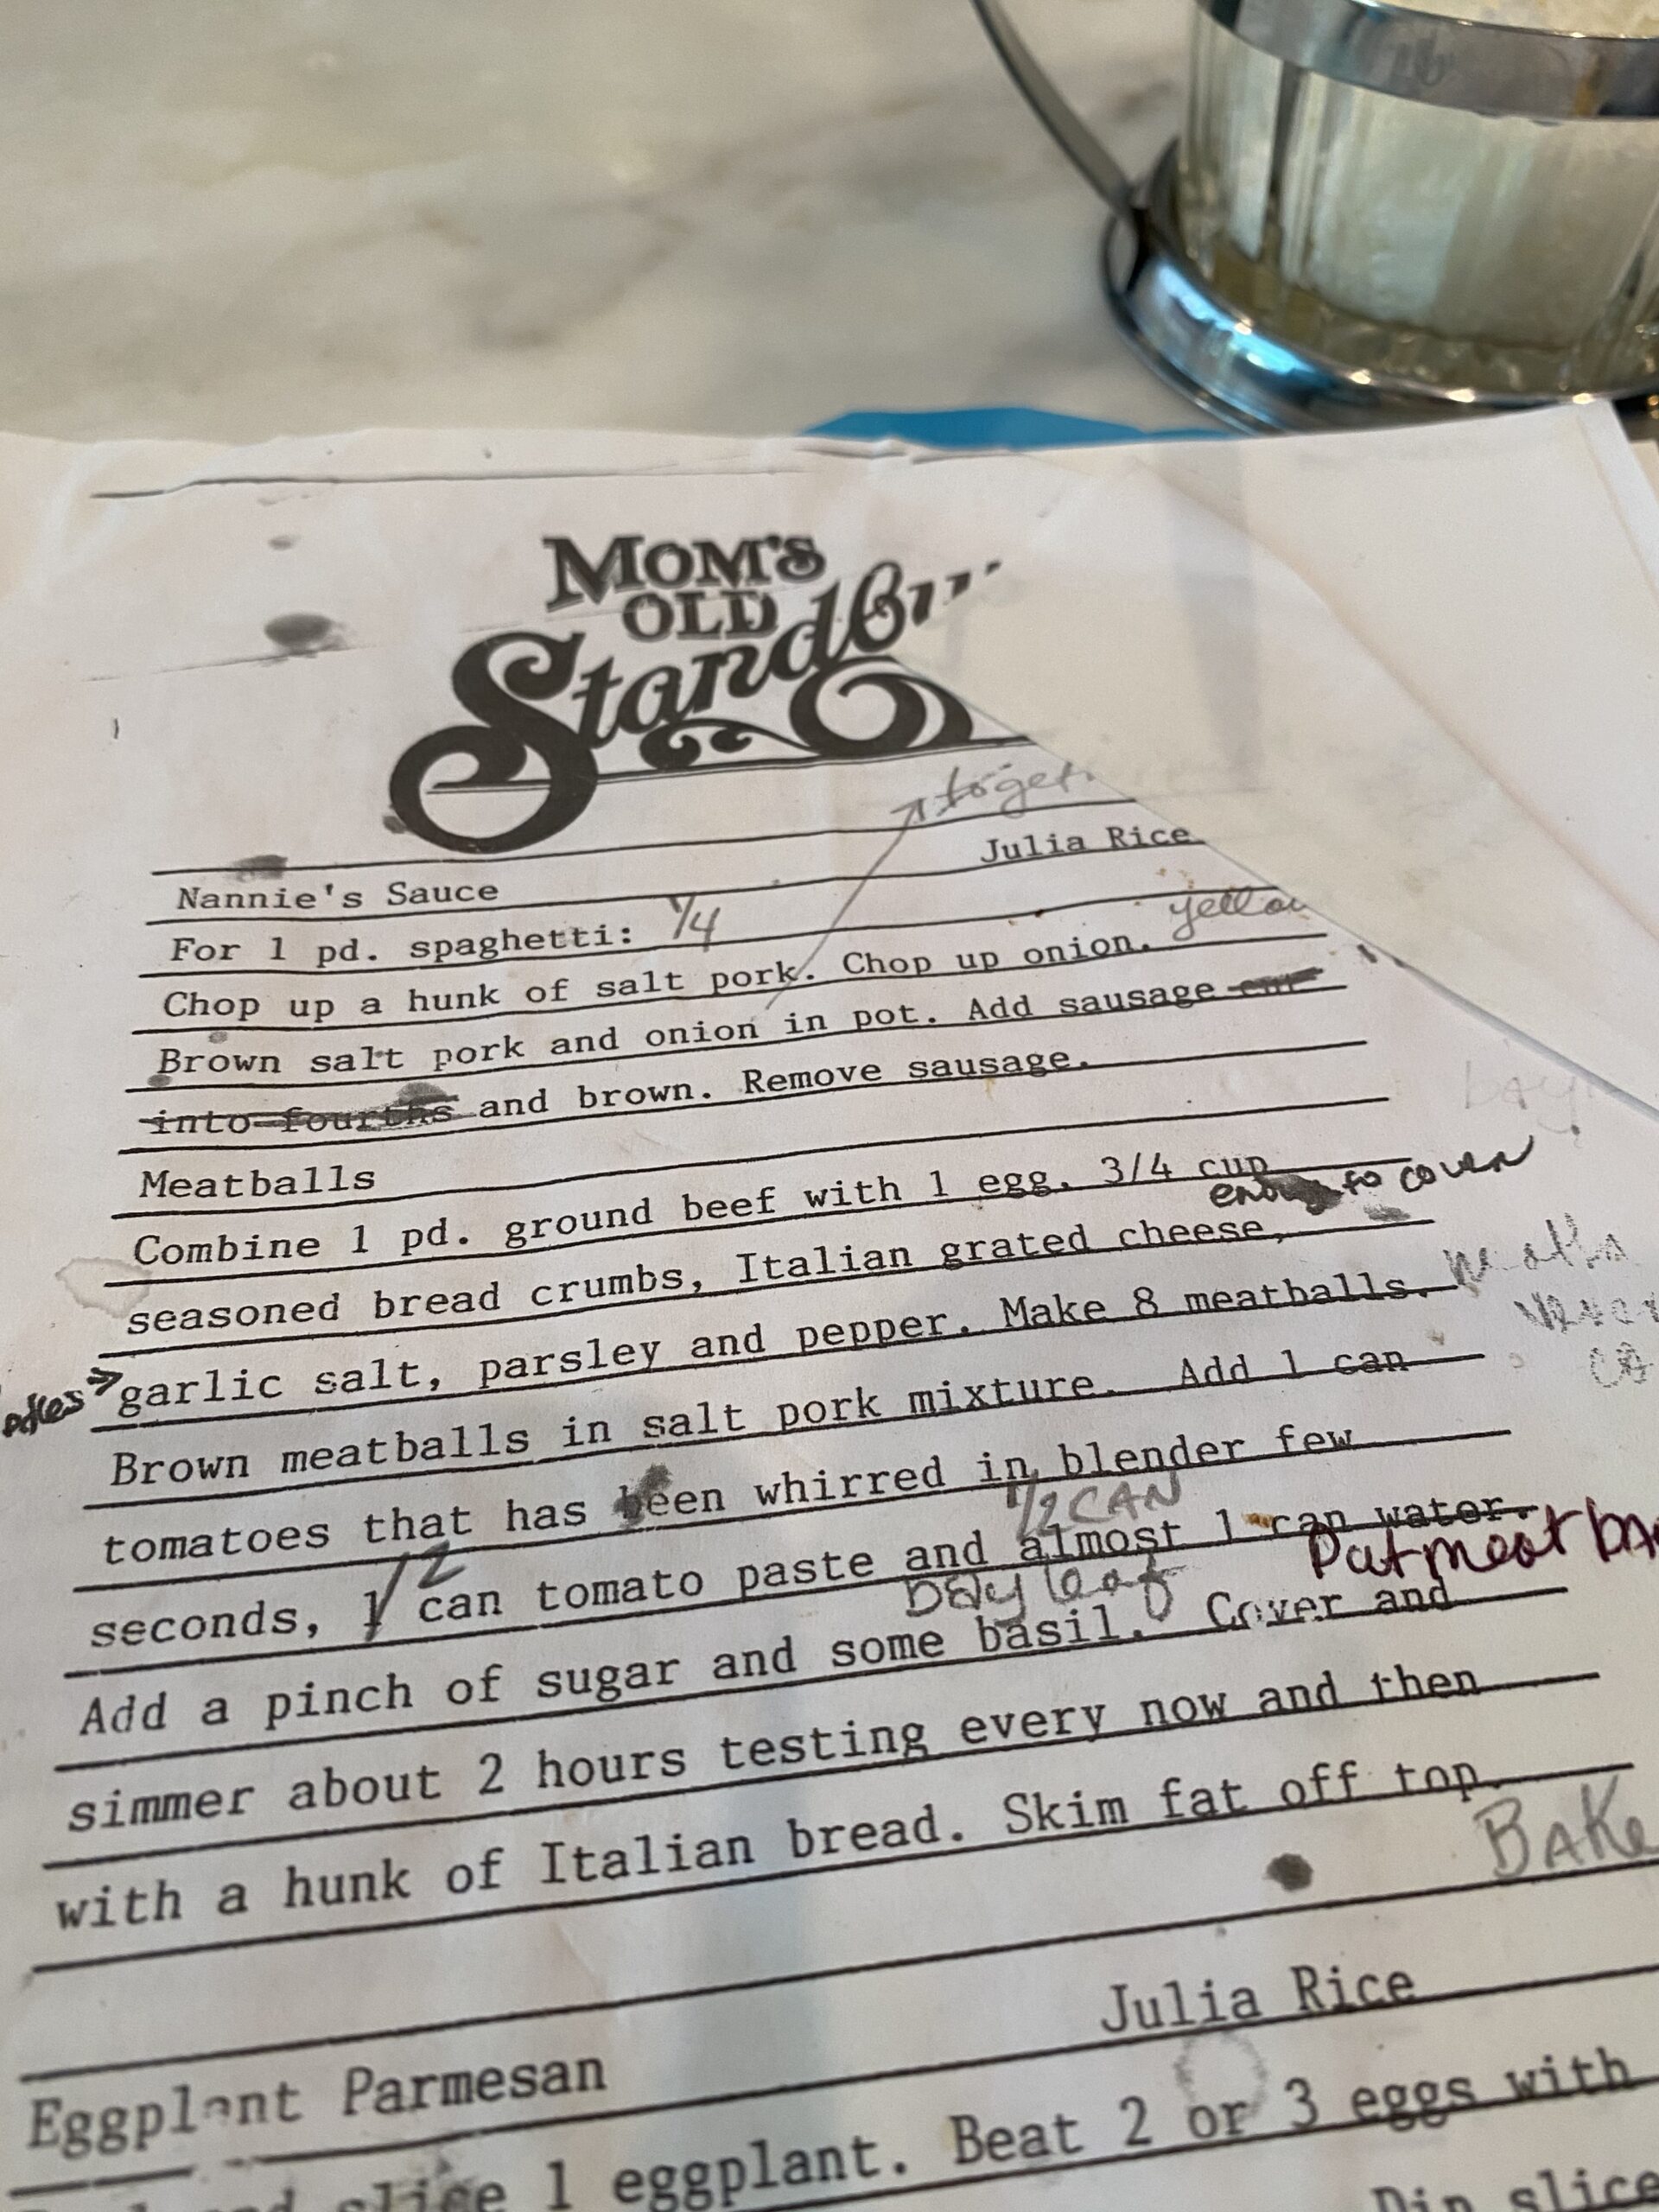 MOM'S
OLD
togeth
Julia Rice
Nannie's Sauce
For 1 pd. spaghetti: 1/4
yellow
Chop up a hunk of salt pork. Chop up onion.
Brown salt pork and onion in pot. Add sausage cut
into fourths and brown. Remove sausage.
Meatballs
Combine 1 pd. ground beef with 1 egg, 3/4 cup
enough to cover
seasoned bread crumbs, Italian grated cheese,
garlic salt, parsley and pepper. Make 8 meatballs.
Brown meatballs in salt pork mixture. Add 1 can
tomatoes that has been whirred in blender few
1/2 CAN
seconds, 1/2 can tomato paste and almost 1 can water.
Bay leaf Put meat ba
Add a pinch of sugar and some basil. Cover and
simmer about 2 hours testing every now and then
with a hunk of Italian bread. Skim fat off top.
BAKe
Julia Rice
Eggplant Parmesan
and slice 1 eggplant. Beat 2 or 3 eggs with
Dip slice